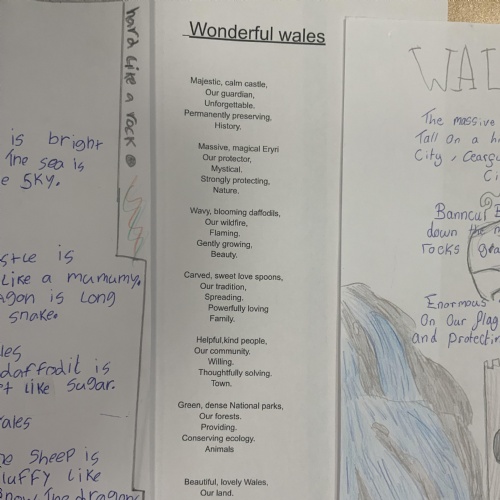 is bright
The sea is
e sky.
stle is
Like a mumumy.
agon is Long
snake.
les
daffodil is
t like sugar.
ales
he sheep is
luffy like
hard like a rock
Wonderful wales
Majestic, calm castle,
Our guardian,
Unforgettable.
Permanently preserving,
History.
Massive, magical Eryri
Our protector,
Mystical,
Strongly protecting,
Nature.
Wavy, blooming daffodils,
Our wildfire,
Flaming.
Gently growing,
Beauty.
Carved, sweet love spoons,
Our tradition,
Spreading.
Powerfully loving
Family.
Helpful,kind people,
Our community.
Willing.
Thoughtfully solving.
Town.
Green, dense National parks,
Our forests.
Providing.
Conserving ecology.
Animals
Beautiful, lovely Wales,
Our land.
WAL
The massive
Tall on a h
City,
Ci
down the
rocks
Enormous
On Our Flag
and protectin